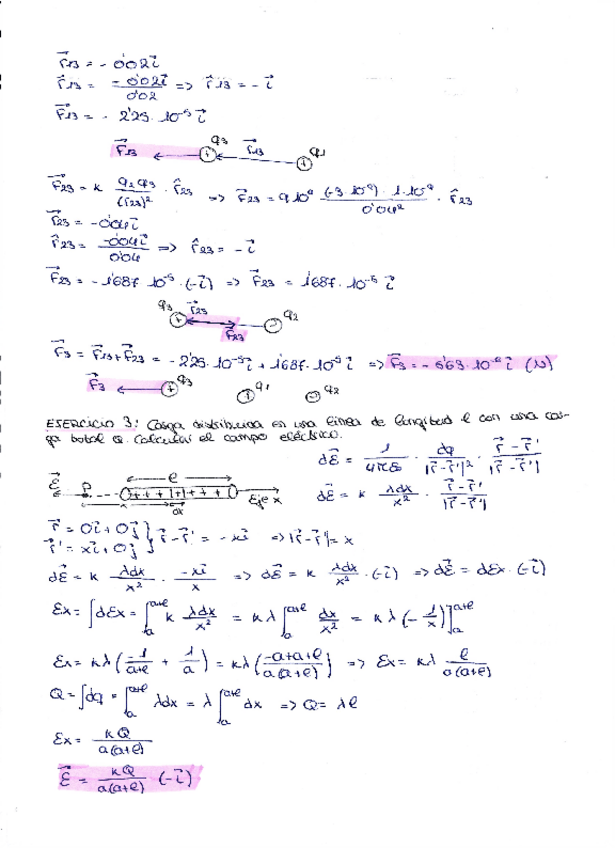 r⃗13 = - 0'02 i⃗
r̂13 = - 0'02 i⃗ / 0'02 => r̂13 = - i⃗
F⃗13 = - 2'25 · 10⁻⁵ i⃗
F⃗13 q3 r⃗13 q1
+ +
F⃗23 = k q2 q3 / (r23)² · r̂23 => F⃗23 = 9·10⁹ (-3·10⁻⁹) · 1·10⁻⁹ / 0'04² · r̂23
r⃗23 = - 0'04 i⃗
r̂23 = - 0'04 i⃗ / 0'04 => r̂23 = - i⃗
F⃗23 = - 1'687 · 10⁻⁵ · (- i⃗) => F⃗23 = 1'687 · 10⁻⁵ i⃗
q3 r⃗23 q2
+ -
F⃗23
F⃗3 = F⃗13 + F⃗23 = - 2'25 · 10⁻⁵ i⃗ + 1'687 · 10⁻⁵ i⃗ => F⃗3 = - 5'63 · 10⁻⁶ i⃗ (N)
F⃗3 + q3 q1 q2
ESERCICIO 3: Carga distribuida en una línea de longitud l con una car-
ga total Q. Calcular el campo eléctrico.
dE⃗ = 1 / 4πε · dq / |r⃗ - r⃗'|² · r⃗ - r⃗' / |r⃗ - r⃗'|
E⃗ P l + + + + + + + Eje x
a dx
dE⃗ = k λdx / x² · r⃗ - r⃗' / |r⃗ - r⃗'|
r⃗ = 0 i⃗ + 0 j⃗
r⃗' = x i⃗ + 0 j⃗ } r⃗ - r⃗' = - x i⃗ => |r⃗ - r⃗'| = x
dE⃗ = k λdx / x² · - x i⃗ / x => dE⃗ = k λdx / x² · (- i⃗) => dE⃗ = dEx · (- i⃗)
Ex = ∫dEx = ∫ₐᵃ⁺ˡ k λdx / x² = kλ ∫ₐᵃ⁺ˡ dx / x² = kλ (- 1/x)]ₐᵃ⁺ˡ
Ex = kλ (-1 / a+l + 1 / a) = kλ (-a+a+l / a(a+l)) => Ex = kλ l / a(a+l)
Q = ∫dq = ∫ₐᵃ⁺ˡ λdx = λ ∫ₐᵃ⁺ˡ dx => Q = λl
Ex = kQ / a(a+l)
E⃗ = kQ / a(a+l) (- i⃗)